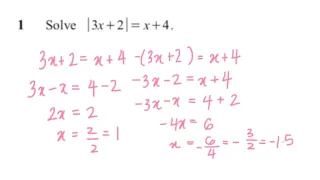 1 Solve |3x + 2| = x + 4.
3x + 2 = x + 4 -(3x + 2) = x + 4
3x - x = 4 - 2 -3x - 2 = x + 4
2x = 2 -3x - x = 4 + 2
x = 2/2 = 1 -4x = 6
x = -6/4 = -3/2 = -1.5